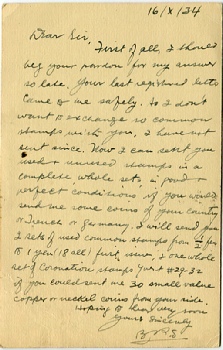 16/X/24
Dear Sir,
First of all, I should
beg your pardon for my answer
so late. Your last registred letter
came to me safely. So I don't
want to exchange so common
stamps with you, I have not
sent since. Now I can sent you
used & unused stamps in a
complete whole sets, in good &
perfect conditions, if you would
send me some coins of your country
or French or Germany. I will send you
2 sets of used common stamps from
to 1 yen (8 all) first issues, & one whole
set of Coronation stamps
if you could sent me 30 small value
copper or neckel coins from your side.
Hoping to hear very soon
Yours Sincerely